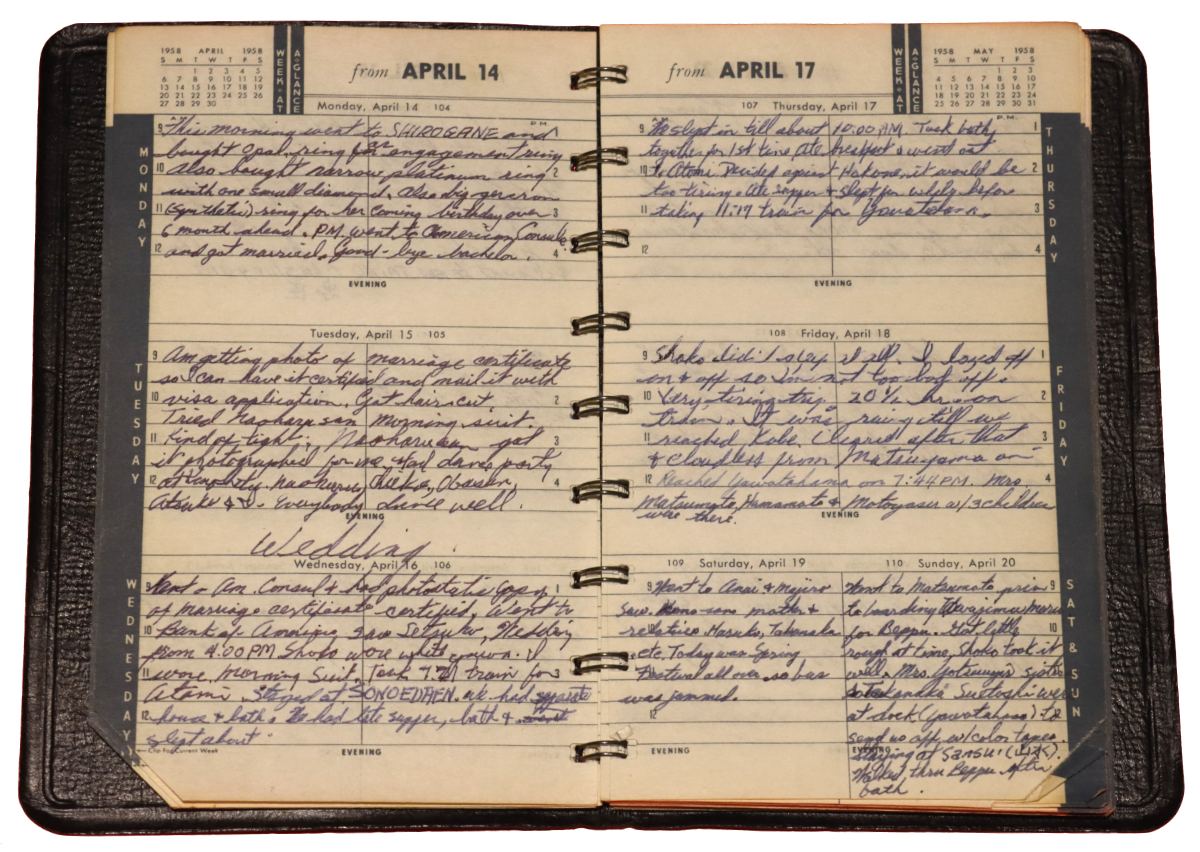 1958 APRIL 1958
S M T W T F S
1 2 3 4 5
6 7 8 9 10 11 12
13 14 15 16 17 18 19
20 21 22 23 24 25 26
27 28 29 30
WEEK-AT
A-GLANCE
from APRIL 14
Monday, April 14 104
MONDAY
This morning went to SHIROGANE and
bought opal ring for engagement ring
also bought narrow platinum ring
with one small diamond. Also big
(synthetic) ring for her coming birthday over
6 month ahead. P.M. went to American Consule
and got married. Good-bye bachelor.
EVENING
Tuesday, April 15 105
TUESDAY
Am getting photo of marriage certificate
so I can have it certified and mail it with
visa application. Got haircut.
Tried Naoharu san morning suit.
Kind of tight. Naoharu san got
it photographed for me. Had dance party
at Chieko, Obasan,
Atsuko & I. Everybody dance well.
EVENING
Wedding
Wednesday, April 16 106
WEDNESDAY
Went to Am. Consul & had photostatic copy of
of marriage certificate certified. Went to
Bank of America, saw Setsuko, Wedding
from 4:00 PM Shoko wore white gown. I
wore morning suit. Took train for
Atami. Stayed at SONOEDAEN. We had separate
house & bath. We had late supper, bath & went
slept about
Clip For Current Week
EVENING
from APRIL 17
WEEK-AT
A-GLANCE
1958 MAY 1958
S M T W T F S
1 2 3
4 5 6 7 8 9 10
11 12 13 14 15 16 17
18 19 20 21 22 23 24
25 26 27 28 29 30 31
107 Thursday, April 17
P.M.
THURSDAY
We slept in till about 10:00 AM. Took bath
together for 1st time, ate breakfast & went out
to Atami. Decided against Hakone, it would be
too tiring. Ate supper & slept for while before
taking 11:19 train for Yawatahama.
EVENING
108 Friday, April 18
FRIDAY
Shoko didn't sleep at all. I dozed off
on & off so I'm not too bad off.
Very tiring trip 20½ hrs on
train. It was raining till we
reached Kobe. Cleared after that
& cloudless from Matsuyama on
Reached Yawatahama on 7:44 PM. Mrs.
Matsumoto, Hamamoto & Motoyasu w/3 children
were there.
EVENING
109 Saturday, April 19
Went to Anai & Majiro
Saw mother &
relatives. Masuko, Takenaka
etc. Today was Spring
Festival all over so bus
was jammed.
EVENING
110 Sunday, April 20
SAT & SUN
Went to Matsumoto prior
to boarding Uwajima Maru
for Beppu. Got little
rough at time, Shoko took it
well. Mrs. sister
were
at dock (Yawatahama) to
send us off w/color tapes.
Staying at SANSUI (山水).
Walked thru Beppu after
bath.
EVENING